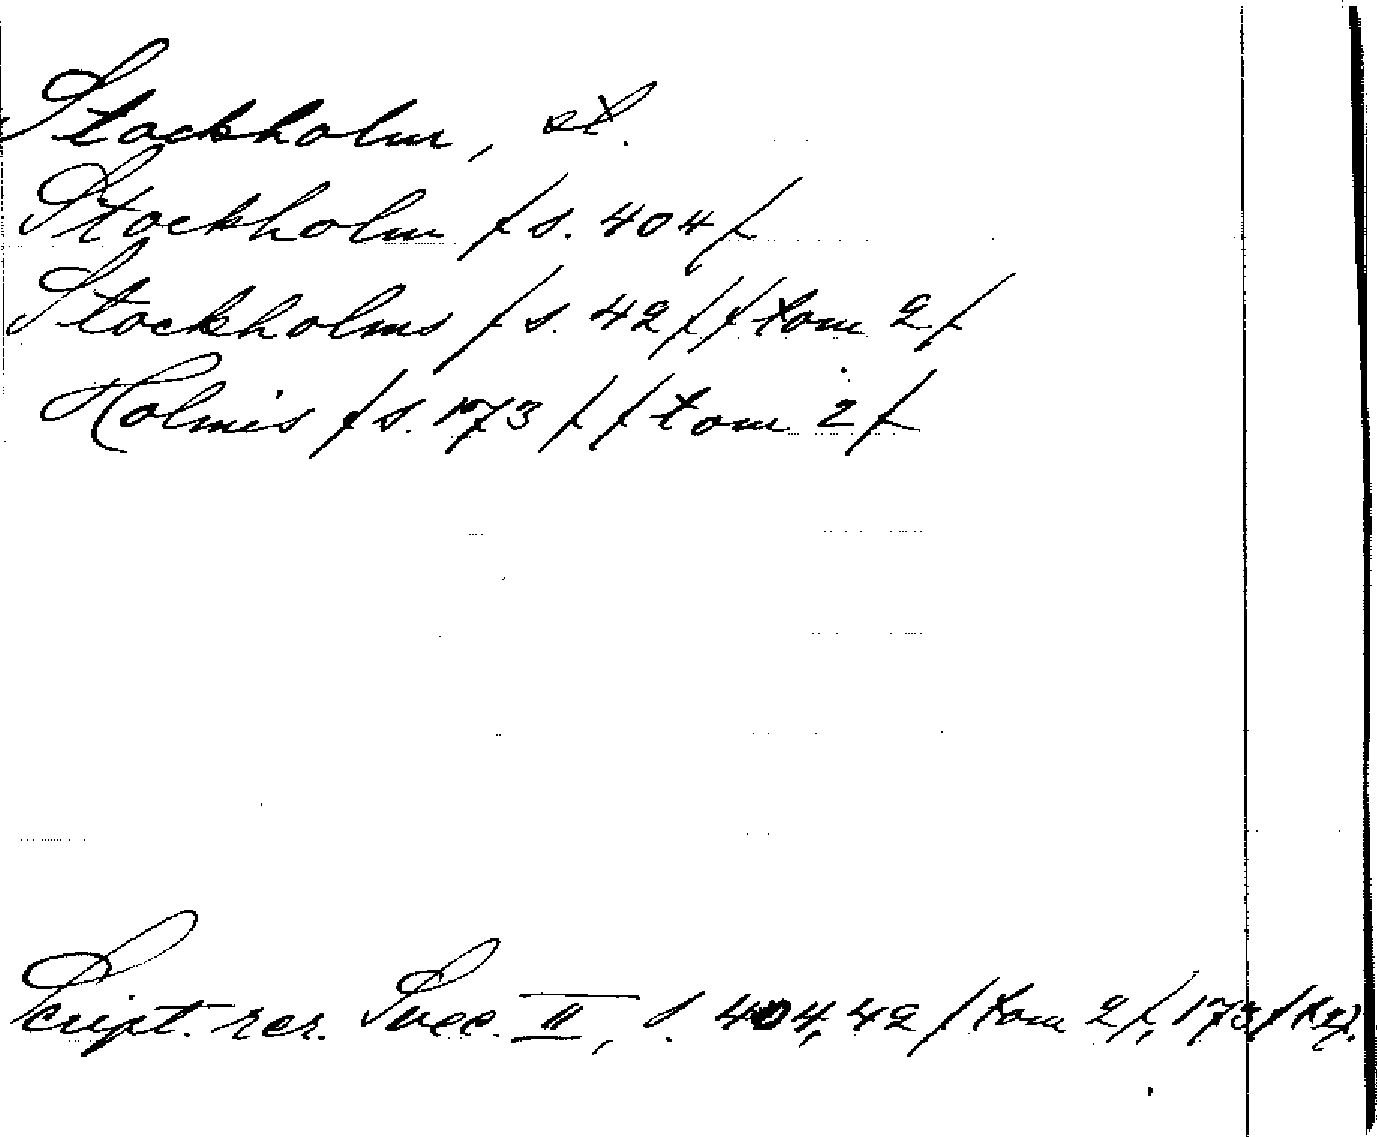 Stockholm, st.
Stockholm /s. 404/
Stockholms /s. 42/ /tom 2/
Holmis /s. 173/ /tom 2/
Script. rer. Svec. II, s. 404, 42 /tom 2/, 173/